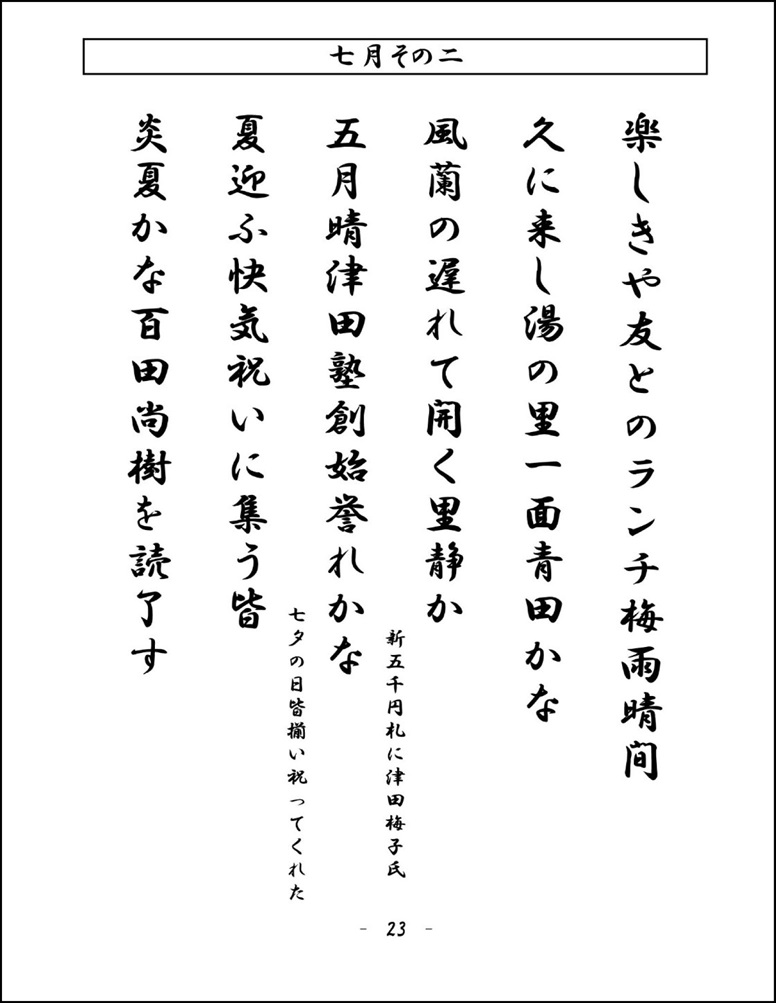 七月その二
楽しきや友とのランチ梅雨晴間
久に来し湯の里一面青田かな
風蘭の遅れて開く里静か
新五千円札に津田梅子氏
五月晴津田塾創始誉れかな
七夕の日皆揃い祝ってくれた
夏迎ふ快気祝いに集う皆
炎夏かな百田尚樹を読了す
- 23 -